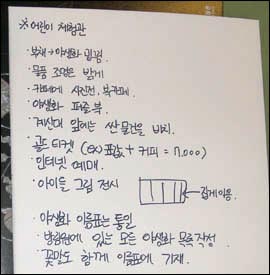 ※ 어린이 체험관
· 부채 → 야생화 밑그림
· 물품 조명은 밝게
· 카페에 사진전, 북카페
· 야생화 퍼즐 북
· 계산대 앞에는 싼 물건을 배치
· 골드티켓 (EX) 표값 + 커피 = 7,000)
· 인터넷 예매
· 아이들 그림 전시
길게 이용
· 야생화 이름표는 통일
· 방림원에 있는 모든 야생화 목록 작성
· 꽃말도 함께 이름표에 기재